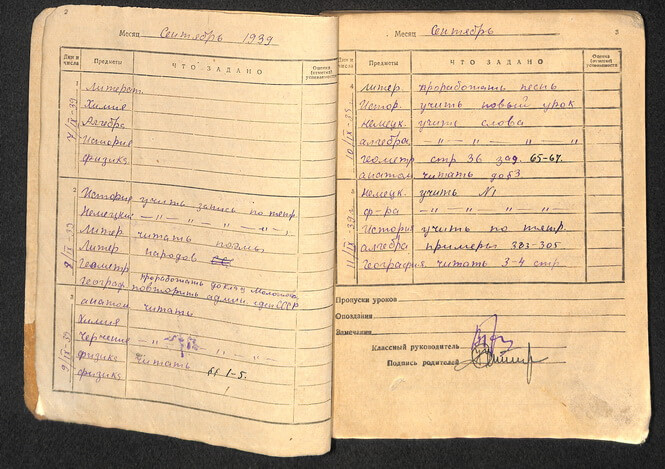 2
Месяц Сентябрь 1939
Дни и числа Предметы ЧТО ЗАДАНО Оценка (отметка) успеваемости
7/IX-39
1 Литерат.
Химия
Алгебра
История
физика
8/IX-39
2 История учить запись по тетр.
Немецкий —„— —„— „ — „ —
Литер. читать поэмы
Литер народов
Геометр проработать доклад Молотова
Географ повторить админ. СССР
9/IX-39
3 анатом читать
Химия
Черчение —„— „ — „ —
физика читать §§ 1-5.
физика
Месяц Сентябрь
3
Дни и числа Предметы ЧТО ЗАДАНО Оценка (отметка) успеваемости
10/IX-39
4 Литер. проработать песнь
Истор. учить новый урок
Немецк. учить слова
алгебра —„— „ — „ — „ —
геометр стр 36 зад. 65-67.
анатом читать до §3
11/IX-39
5 Немецк. учить №1
ф-ра —„— „ „ „
История учить по тетр.
алгебра примеры 303-305.
География читать 3-4 стр
Пропуски уроков
Опоздания
Замечания
Классный руководитель
Подпись родителей